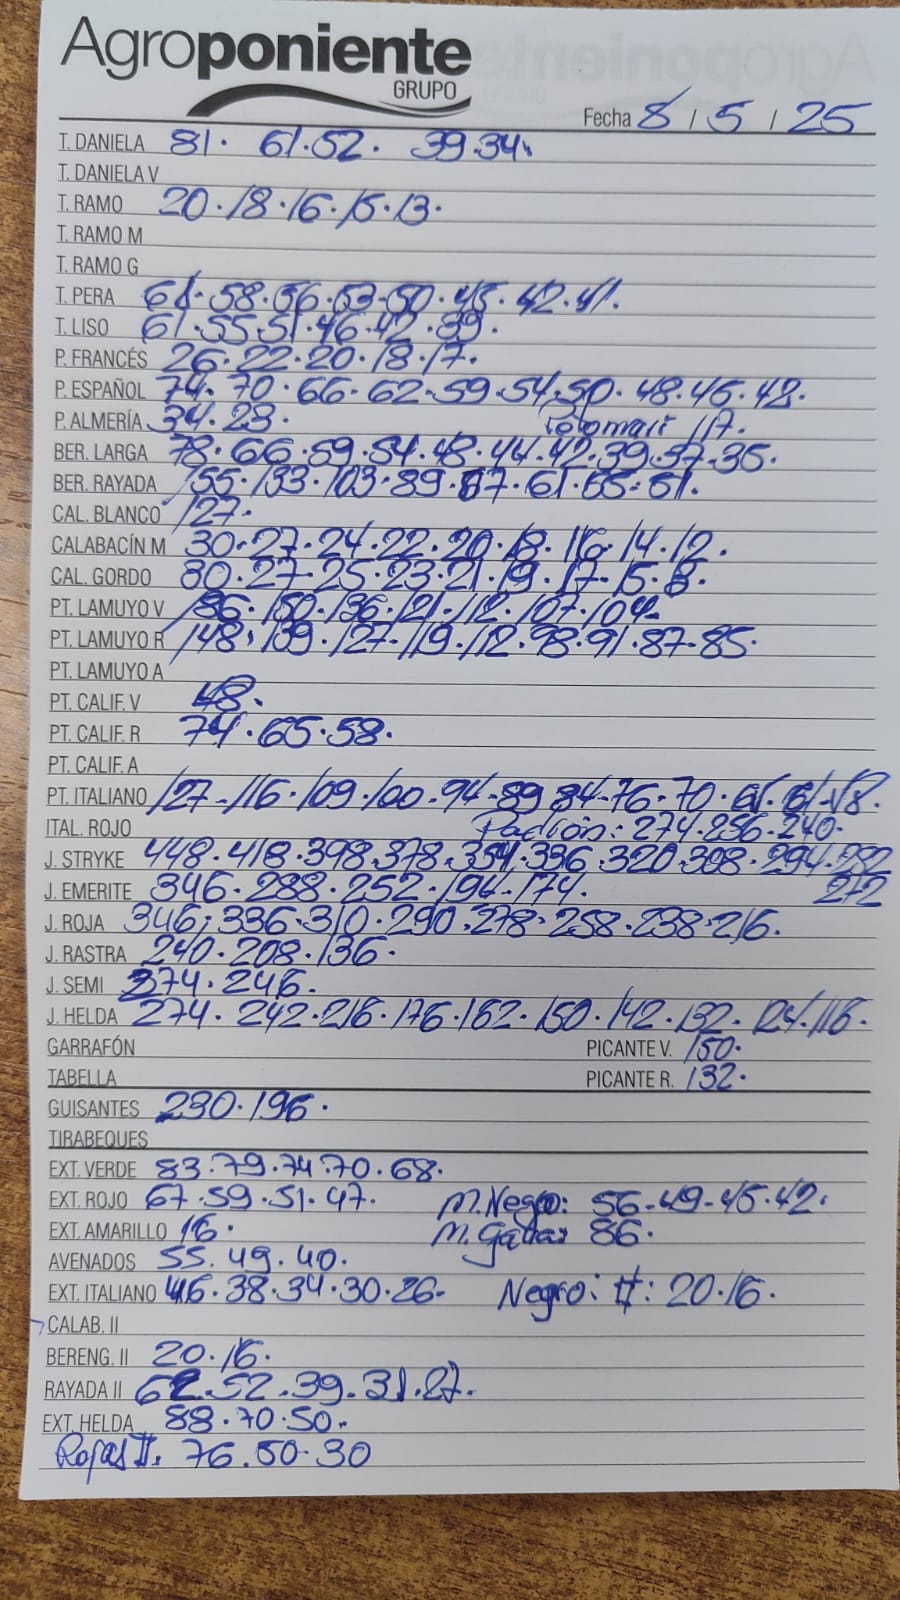 Agroponiente
GRUPO
Fecha 8 / 5 / 25
T. DANIELA 81. 61.52. 39.34.
T. DANIELA V
T. RAMO 20.18.16.15.13.
T. RAMO M
T. RAMO G
T. PERA 61.58.56.53.50.45.42.41.
T. LISO 61.55.51.46.42.39.
P. FRANCÉS 26.22.20.18.17.
P. ESPAÑOL 74.70.66.62.59.54.50.48.46.42.
P. ALMERÍA 34.23. 117.
BER. LARGA 78.66.59.54.48.44.42.39.37.35.
BER. RAYADA 155.133.103.89.87.61.65.61.
CAL. BLANCO 127.
CALABACÍN M 30.27.24.22.20.18.16.14.12.
CAL. GORDO 30.27.25.23.21.19.17.15.8.
PT. LAMUYO V 186.150.136.121.112.107.104.
PT. LAMUYO R 148.139.127.119.112.98.91.87.85.
PT. LAMUYO A
PT. CALIF. V 48.
PT. CALIF. R 74.65.58.
PT. CALIF. A
PT. ITALIANO 127.116.109.100.94.89.84.76.70.
ITAL. ROJO Padrón: 274.256.240.
J. STRYKE 448.418.398.378.354.336.320.308.294.282
272
J. EMERITE 346.288.252.194.174.
J. ROJA 346.336.310.290.278.258.238.216.
J. RASTRA 240.208.136.
J. SEMI 374.246.
J. HELDA 274.242.216.176.162.150.142.132.124.116.
GARRAFÓN PICANTE V. 150.
TABELLA PICANTE R. 132.
GUISANTES 230.196.
TIRABEQUES
EXT. VERDE 83.79.74.70.68.
EXT. ROJO 67.59.51.47. M. Negro: 56-49-45.42.
EXT. AMARILLO 16. M. 86.
AVENADOS 55.49.40.
EXT. ITALIANO 46.38.34.30.26. Negro: II: 20.16.
CALAB. II
BERENG. II 20.16.
RAYADA II 62.52.39.31.27.
EXT. HELDA 88.70.50.
Rojas II. 76.50.30